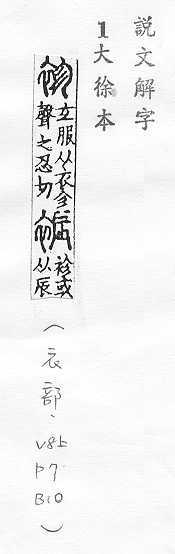 説文解字
1大徐本
袗 玄服从衣㐱
聲之忍切 裖 袗或
从辰
（衣部、V8上 P7 B10）